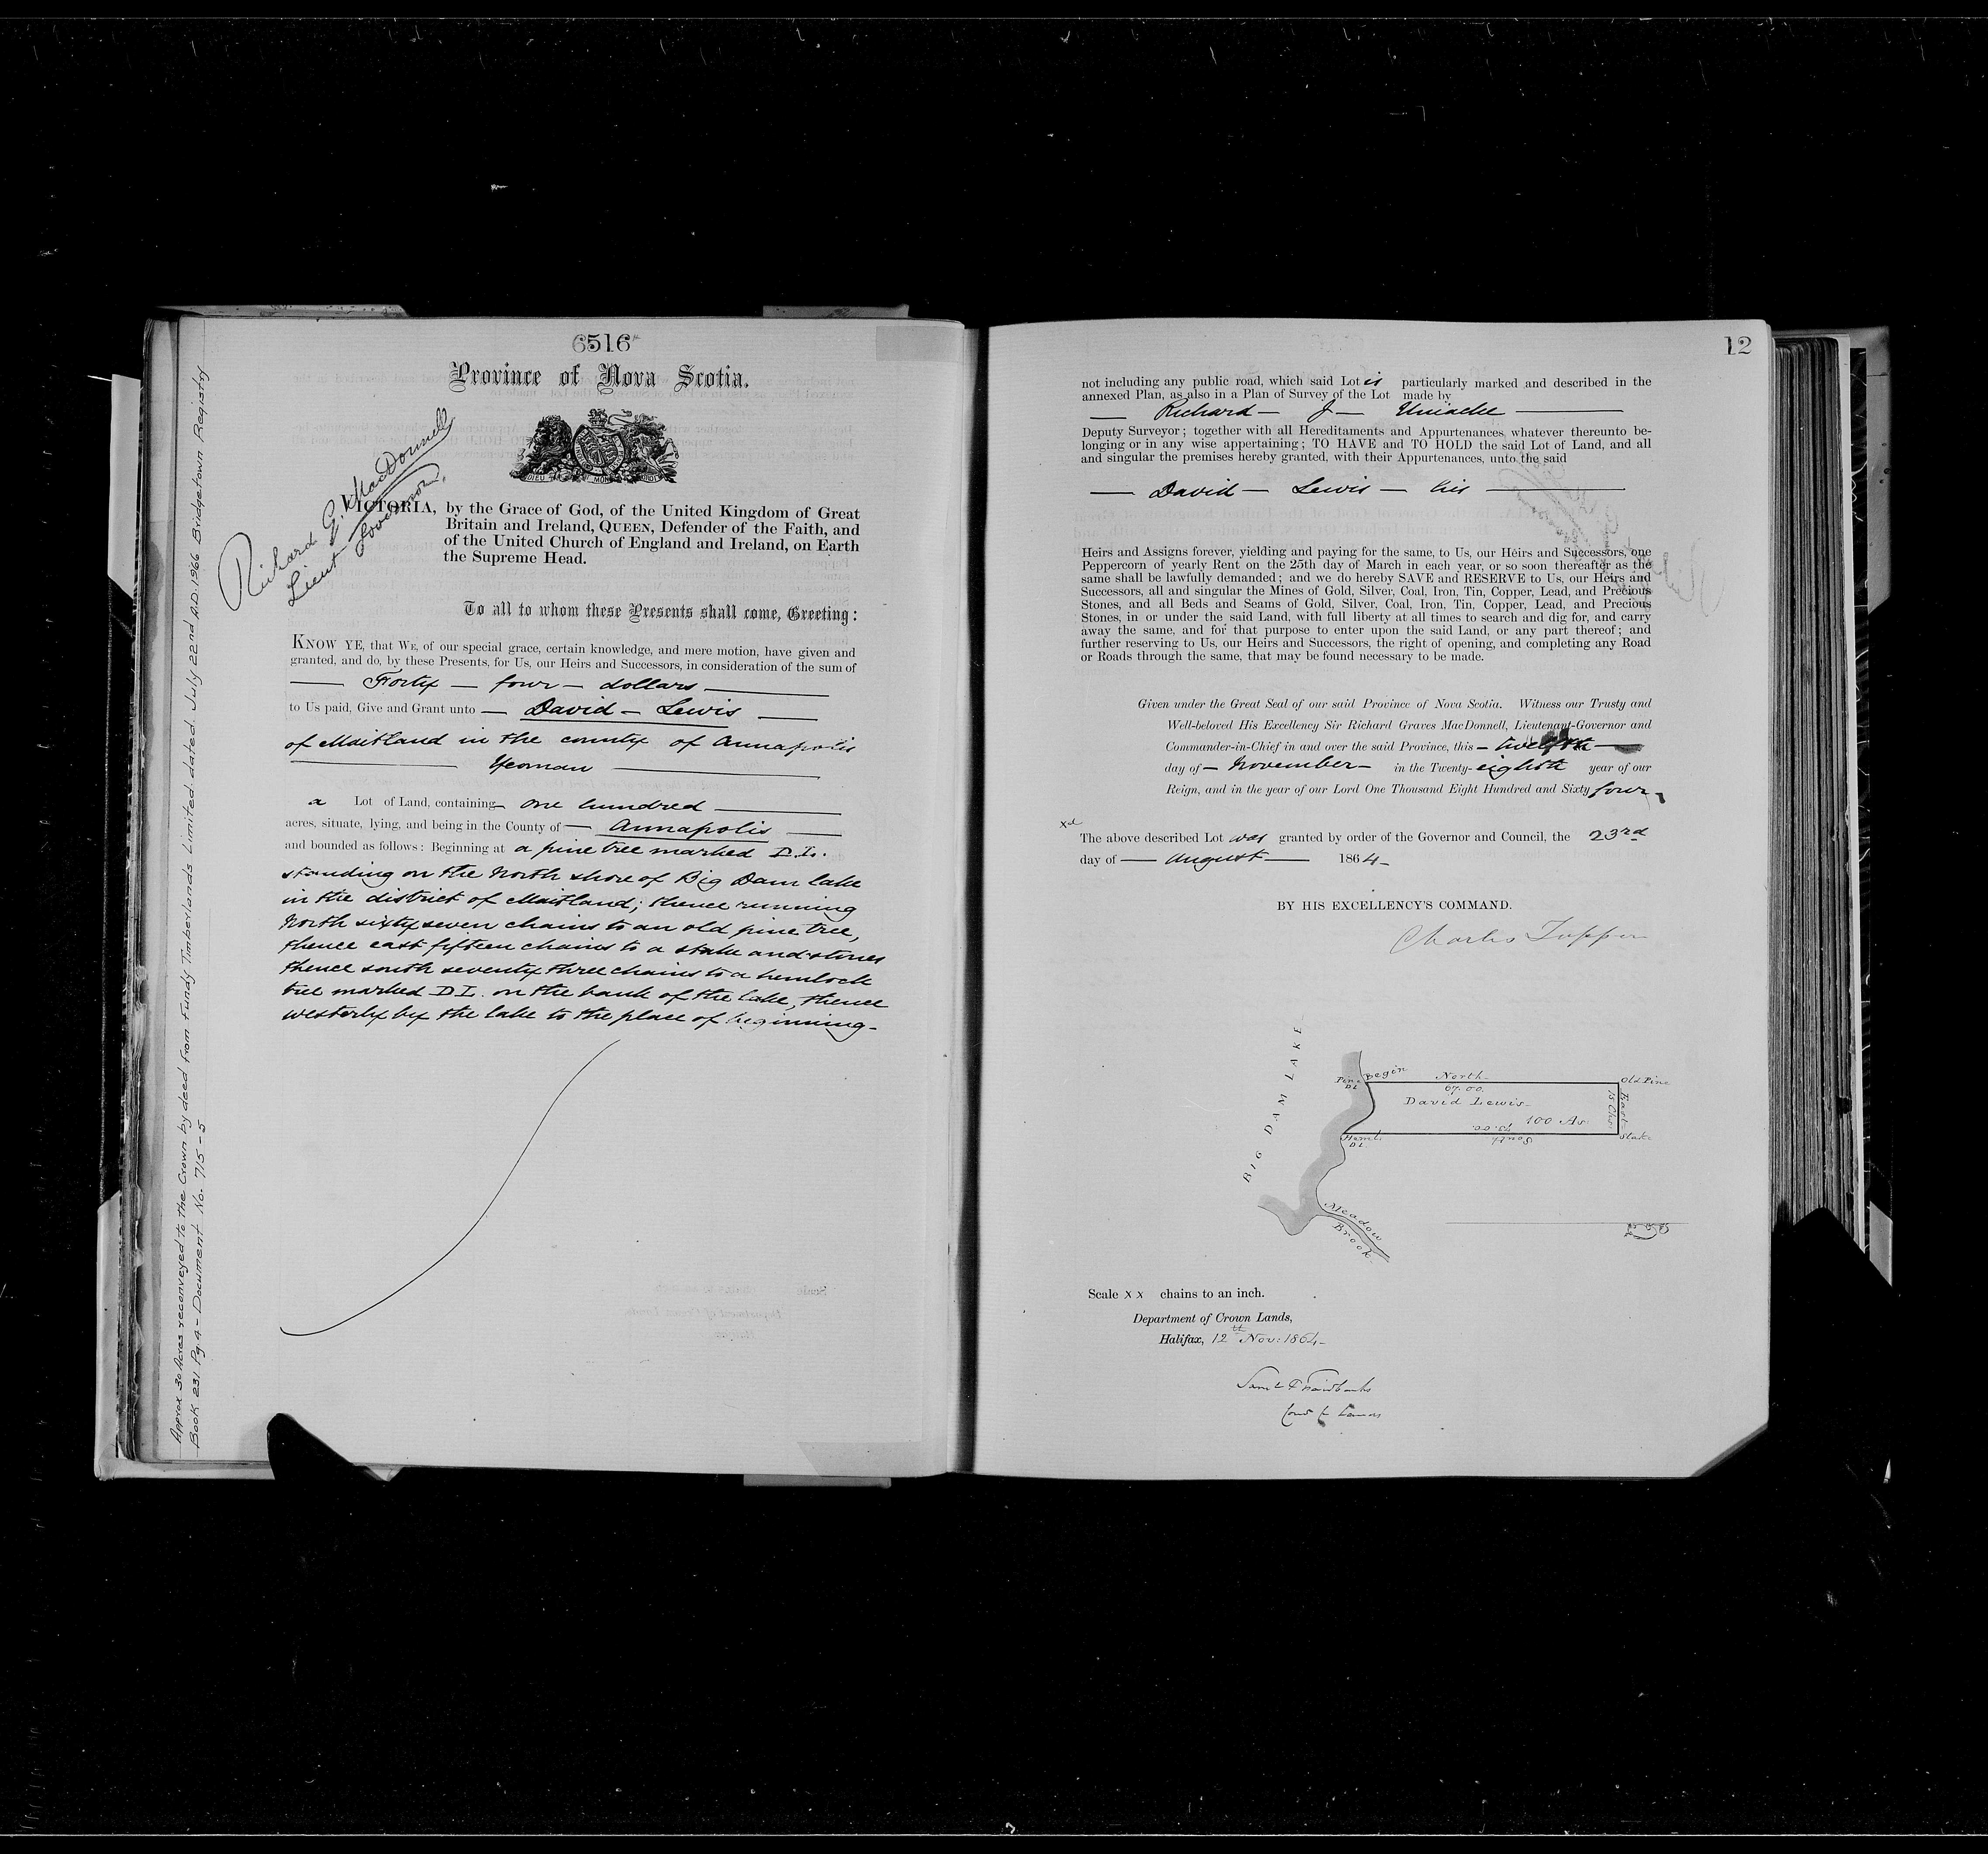 6516
Province of Nova Scotia.
Richard G. MacDonnell
Lieut Governor.
DIEU ET MON DROIT
VICTORIA, by the Grace of God, of the United Kingdom of Great
Britain and Ireland, QUEEN, Defender of the Faith, and
of the United Church of England and Ireland, on Earth
the Supreme Head.
To all to whom these Presents shall come, Greeting:
KNOW YE, that WE, of our special grace, certain knowledge, and mere motion, have given and
granted, and do, by these Presents, for Us, our Heirs and Successors, in consideration of the sum of
— Forty — four — dollars —
to Us paid, Give and Grant unto — David — Lewis —
of Maitland in the county of Annapolis
— Yeoman —
a Lot of Land, containing — one hundred —
acres, situate, lying, and being in the County of — Annapolis —
and bounded as follows: Beginning at a pine tree marked D.L.
standing on the North shore of Big Dam lake
in the district of Maitland; thence running
North sixty seven chains to an old pine tree,
thence east fifteen chains to a stake and stones
thence south seventy three chains to a hemlock
tree marked D L. on the bank of the lake, thence
westerly by the lake to the place of beginning-
Approx 30 Acres reconveyed to the Crown by deed from Fundy Timberlands Limited dated July 22nd A.D. 1966 Bridgetown Registry
Book 231 Pg. 4 - Document No. 715 - 5
12
not including any public road, which said Lot is particularly marked and described in the
annexed Plan, as also in a Plan of Survey of the Lot made by
— Richard — J — Uniacke —
Deputy Surveyor; together with all Hereditaments and Appurtenances whatever thereunto be-
longing or in any wise appertaining; TO HAVE and TO HOLD the said Lot of Land, and all
and singular the premises hereby granted, with their Appurtenances, unto the said
— David — Lewis — his —
Heirs and Assigns forever, yielding and paying for the same, to Us, our Heirs and Successors, one
Peppercorn of yearly Rent on the 25th day of March in each year, or so soon thereafter as the
same shall be lawfully demanded; and we do hereby SAVE and RESERVE to Us, our Heirs and
Successors, all and singular the Mines of Gold, Silver, Coal, Iron, Tin, Copper, Lead, and Precious
Stones, and all Beds and Seams of Gold, Silver, Coal, Iron, Tin, Copper, Lead, and Precious
Stones, in or under the said Land, with full liberty at all times to search and dig for, and carry
away the same, and for that purpose to enter upon the said Land, or any part thereof; and
further reserving to Us, our Heirs and Successors, the right of opening, and completing any Road
or Roads through the same, that may be found necessary to be made.
Given under the Great Seal of our said Province of Nova Scotia. Witness our Trusty and
Well-beloved His Excellency Sir Richard Graves MacDonnell, Lieutenant-Governor and
Commander-in-Chief in and over the said Province, this — twelfth —
day of — November — in the Twenty-eighth year of our
Reign, and in the year of our Lord One Thousand Eight Hundred and Sixty four
xd
The above described Lot was granted by order of the Governor and Council, the 23rd
day of — August — 1864-
BY HIS EXCELLENCY'S COMMAND.
Charles Tupper
BIG DAM LAKE
Pine
DL
Begin
North
67.00.
Old Pine
David Lewis
100 As.
East
15 Chs.
73.00.
South
Stake
Heml.
DL.
Meadow
Brook
Scale X X chains to an inch.
Department of Crown Lands,
Halifax, 12th Nov: 1864-
Saml P Fairbanks
Comr Cr Lands